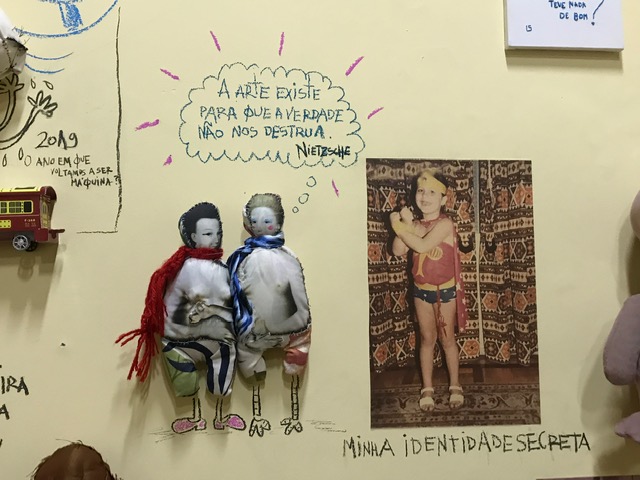 TEVE NADA
DE BOM!
15
A ARTE EXISTE
PARA QUE A VERDADE
NÃO NOS DESTRUA.
NIETZSCHE
2019
ANO EM QUE
VOLTAMOS A SER
MÁQUINA?
IRA
A
MINHA IDENTIDADE SECRETA